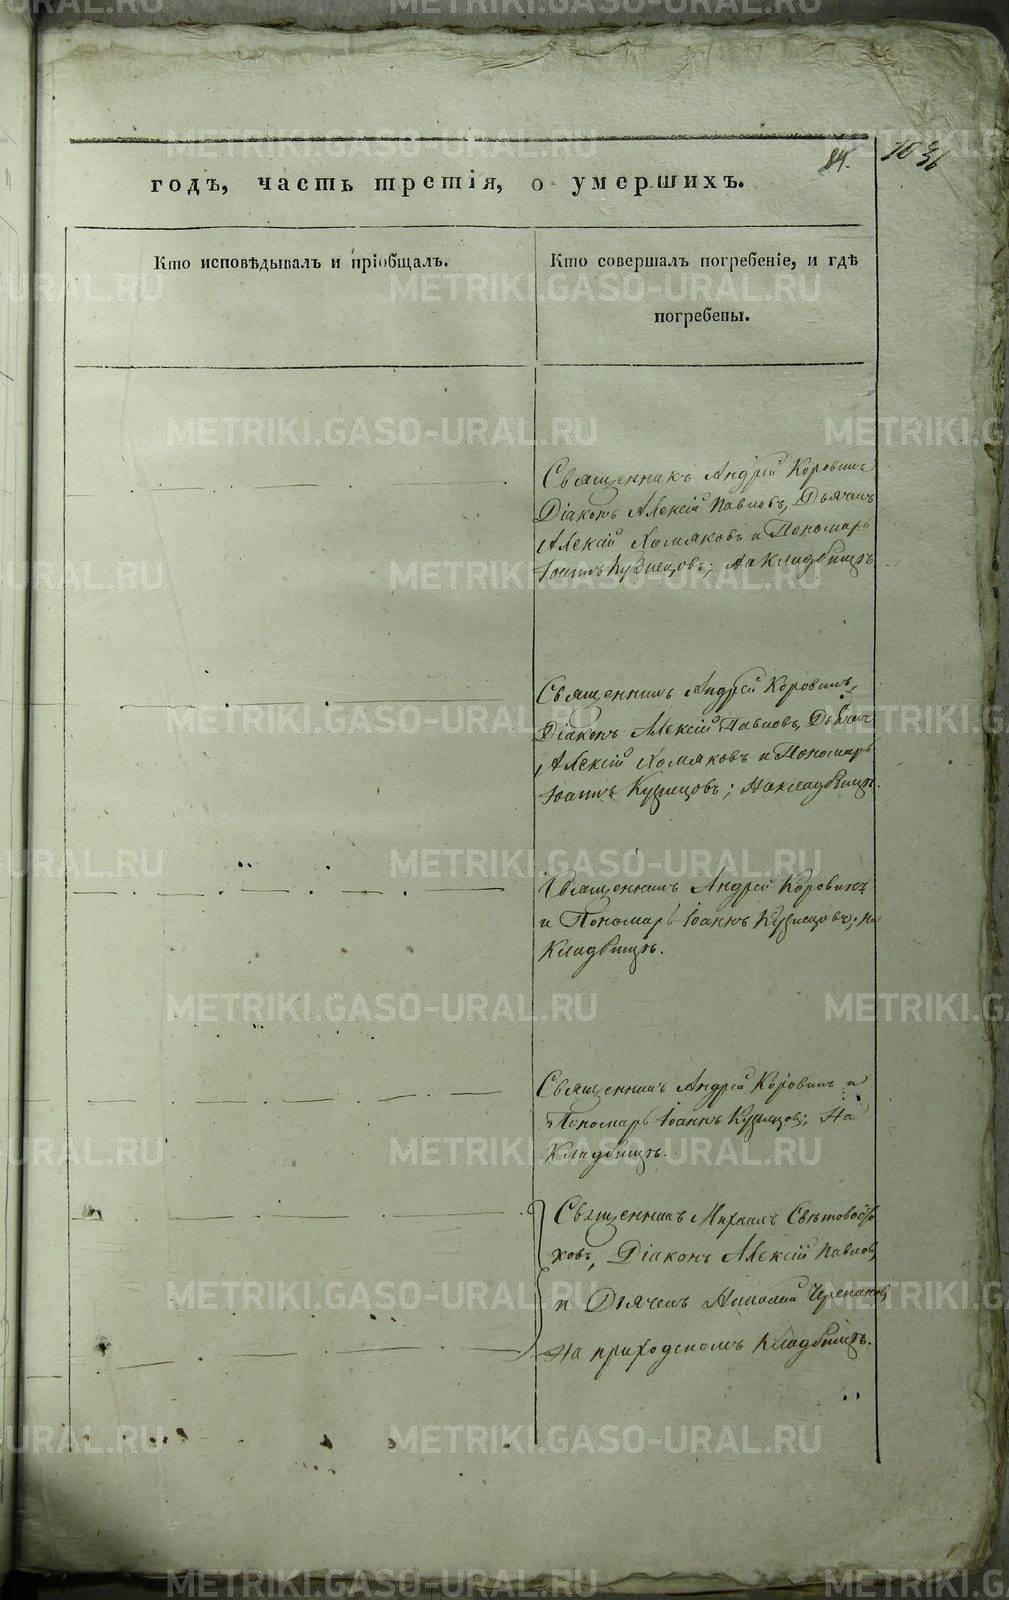 84. 1036
годъ, часть третія, о умершихъ.
Кто исповѣдывалъ и пріобщалъ.
Кто совершалъ погребеніе, и гдѣ
погребены.
Священникъ Андрей Коровинъ
Діаконъ Алексій Павловъ, Дьячекъ
Алексій Хомяковъ и Пономарь
Іоаннъ Кузнецовъ; на Кладбищѣ
Священникъ Андрей Коровинъ,
Діаконъ Алексій Павловъ, Дьячекъ
Алексій Хомяковъ и Пономарь
Іоаннъ Кузнецовъ; На кладбищѣ.
Священникъ Андрей Коровинъ
и Пономарь Іоаннъ Кузнецовъ; на
Кладбищѣ.
Священникъ Андрей Коровинъ и
Пономарь Іоаннъ Кузнецовъ; На
Кладбищѣ.
Священникъ Михаилъ
ховъ, Діаконъ Алексій Павловъ,
и Дьячекъ Николай Черепановъ
На приходскомъ Кладбищѣ.
METRIKI.GASO-URAL.RU